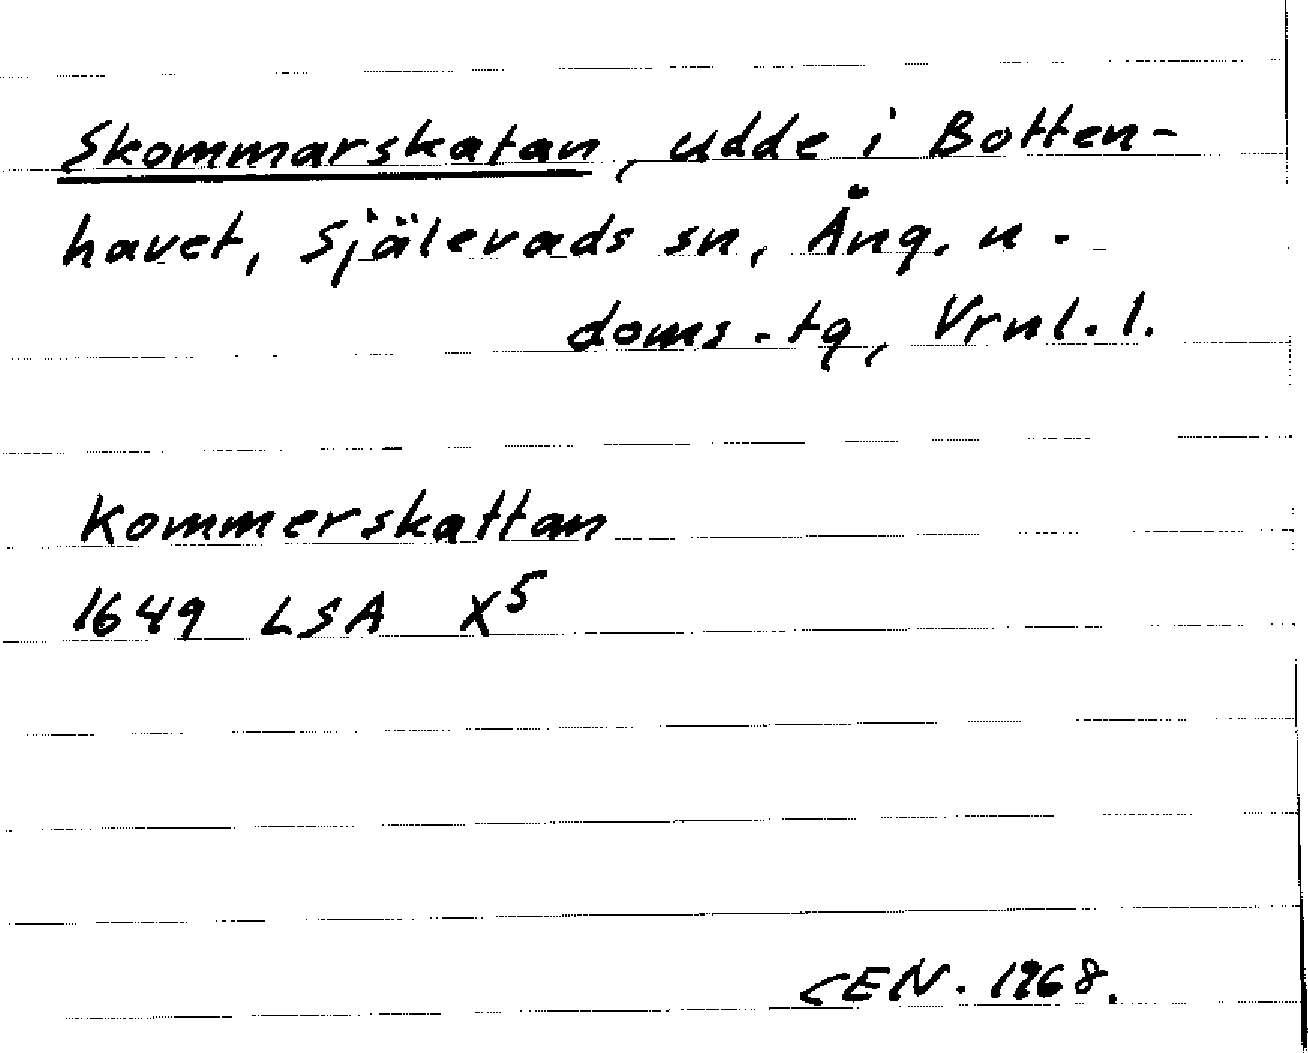 Skommarskatan, udde i Botten-
havet, Själevads sn, Ång. n.
doms.-tg, Vrnl. l.
Kommerskattan
1649 LSA X⁵
CEN. 1968.